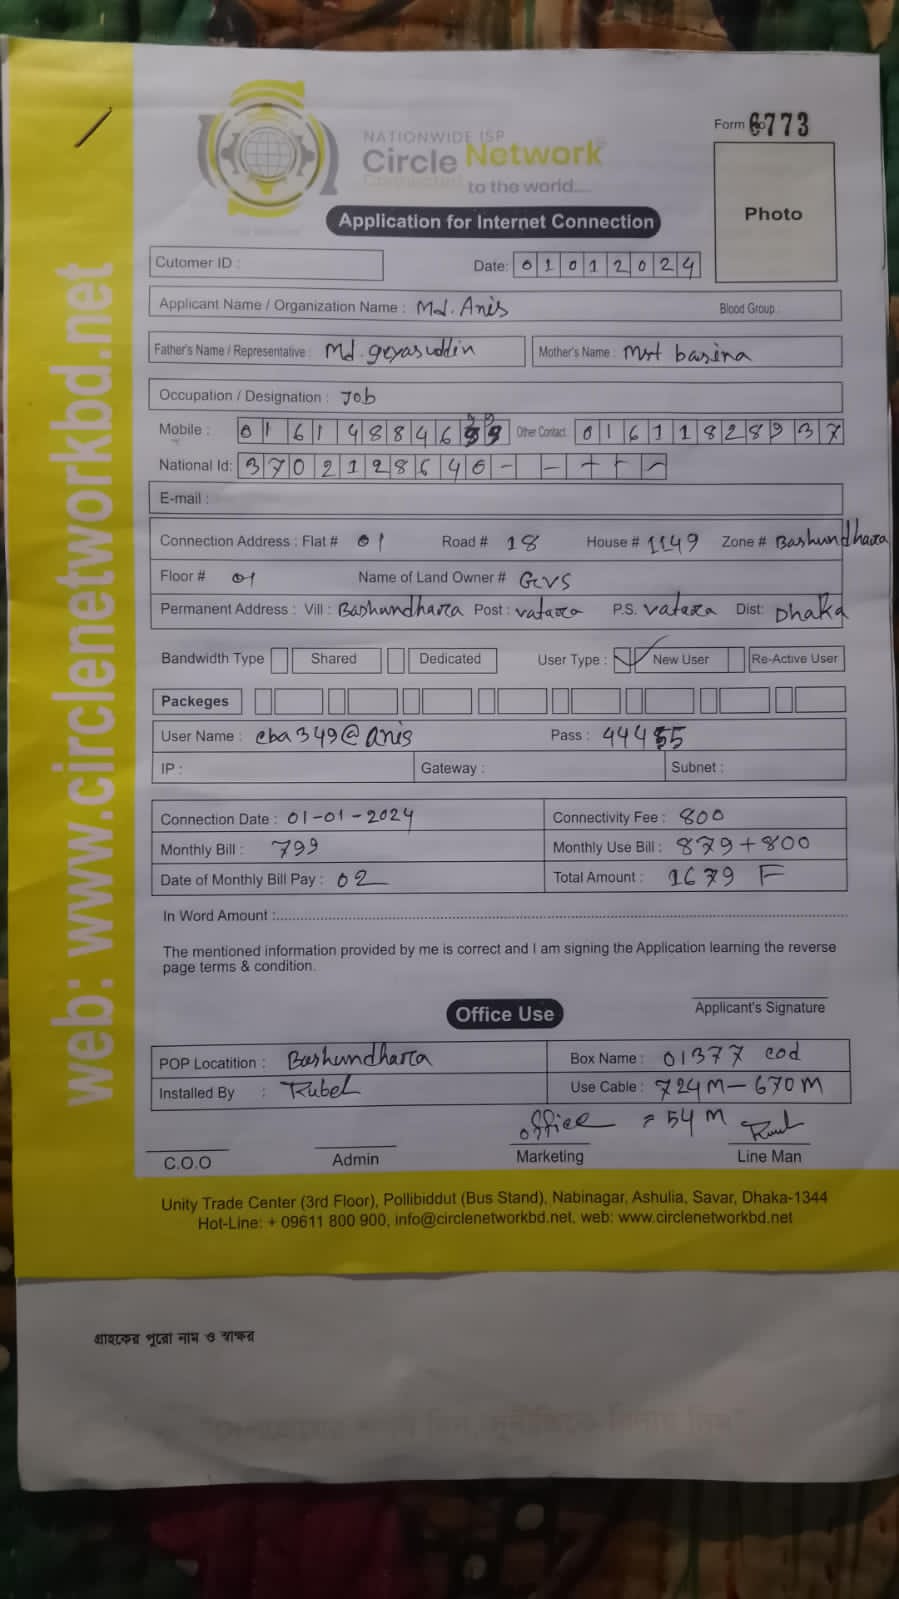 Form No 6773
NATIONWIDE ISP
Circle Network
Connecting to the world....
Photo
Application for Internet Connection
Cutomer ID :
Date: 01012024
Applicant Name / Organization Name : Md. Anis Blood Group :
Father's Name / Representative : Md. geyasuddin Mother's Name : Mst basina
Occupation / Designation : Job
Mobile : 016148846 Other Contact: 01611828937
National Id: 3702128640
E-mail :
Connection Address : Flat # 01 Road # 18 House # 1149 Zone # Bashundhara
Floor # 01 Name of Land Owner # GCVS
Permanent Address : Vill : Bashundhara Post : vatara P.S. vatara Dist: Dhaka
Bandwidth Type Shared Dedicated User Type : New User Re-Active User
Packeges
User Name : cba349@anis Pass : 44455
IP : Gateway : Subnet :
Connection Date : 01-01-2024 Connectivity Fee : 800
Monthly Bill : 799 Monthly Use Bill : 879+800
Date of Monthly Bill Pay : 02 Total Amount : 1679 F
In Word Amount :
The mentioned information provided by me is correct and I am signing the Application learning the reverse
page terms & condition.
Applicant's Signature
Office Use
POP Locatition : Bashundhara Box Name : 01377 cod
Installed By : Rubel Use Cable : 724M-670M
office = 54 M
C.O.O Admin Marketing Line Man
Unity Trade Center (3rd Floor), Pollibiddut (Bus Stand), Nabinagar, Ashulia, Savar, Dhaka-1344
Hot-Line: + 09611 800 900, info@circlenetworkbd.net, web: www.circlenetworkbd.net
web: www.circlenetworkbd.net
গ্রাহকের পুরো নাম ও স্বাক্ষর